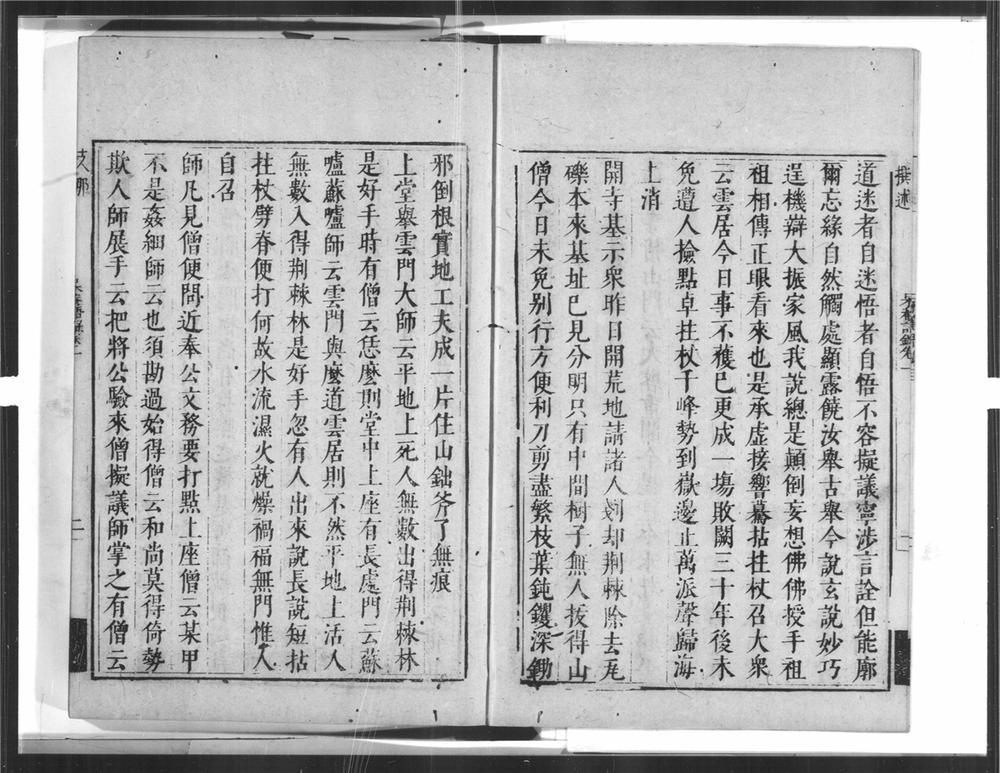 撰述
道迷者自迷悟者自悟不容擬議寧涉言詮但能廓
爾忘緣自然觸處顯露饒汝舉古舉今說玄說妙巧
逞機辯大振家風我說總是顛倒妄想佛佛授手祖
祖相傳正眼看來也是承虛接響驀拈拄杖召大眾
云雲居今日事不獲已更成一場敗闕三十年後未
免遭人撿點卓拄杖千峰勢到嶽邊止萬派聲歸海
上消
開寺基示眾昨日開荒地請諸人剗却荆棘除去瓦
礫本來基址已見分明只有中間樹子無人拔得山
僧今日未免别行方便利刀剪盡繁枝葉鈍钁深鋤
邪倒根實地工夫成一片住山鈯斧了無痕
上堂舉雲門大師云平地上死人無數出得荆棘林
是好手時有僧云恁麼則堂中上座有長處門云蘇
嚧蘇嚧師云雲門與麼道雲居則不然平地上活人
無數入得荆棘林是好手忽有人出來說長說短拈
拄杖劈脊便打何故水流濕火就燥禍福無門惟人
自召
師凡見僧便問近奉公文務要打點上座僧云某甲
不是姦細師云也須勘過始得僧云和尚莫得倚勢
欺人師展手云把將公驗來僧擬議師掌之有僧云
支那
二